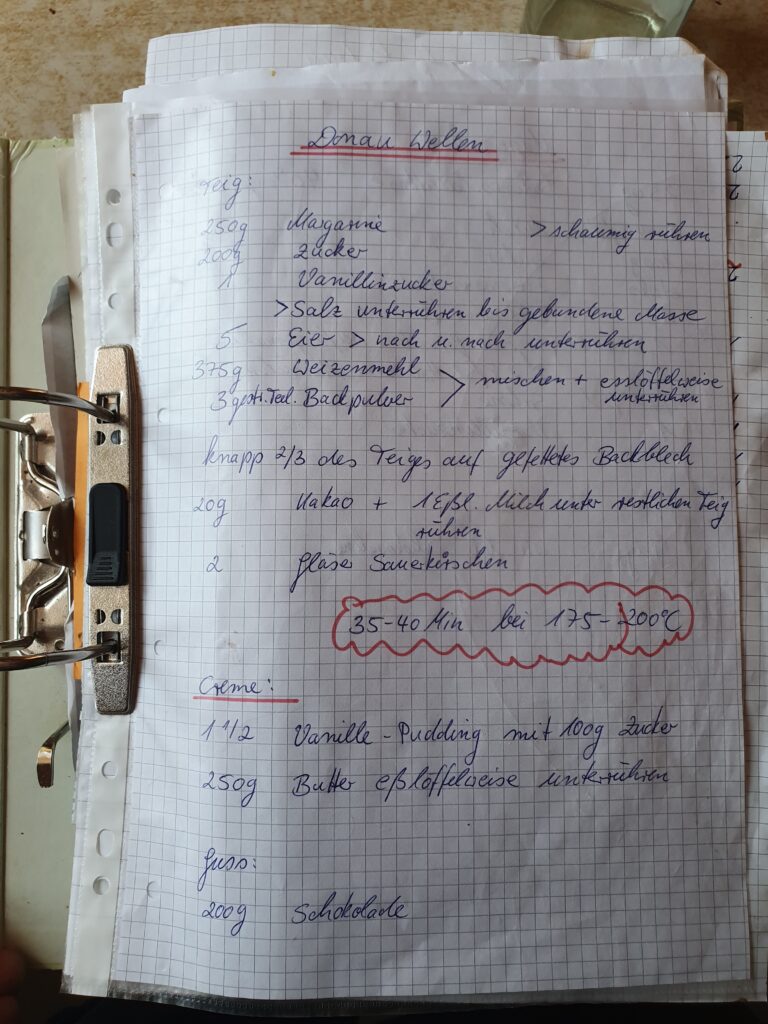 Donau Wellen
Teig:
250g Margarine > schaumig rühren
200g Zucker
1 Vanillinzucker
> Salz unterrühren bis gebundene Masse
5 Eier > nach u. nach unterrühren
375g Weizenmehl > mischen + esslöffelweise
3 gestr. Teel. Backpulver unterrühren
knapp 2/3 des Teiges auf gefettetes Backblech
20g Kakao + 1 Eßl. Milch unter restlichen Teig
rühren
2 Gläser Sauerkirschen
35-40 Min bei 175-200°C
Creme:
1 1/2 Vanille-Pudding mit 100g Zucker
250g Butter eßlöffelweise unterrühren
Guss:
200g Schokolade